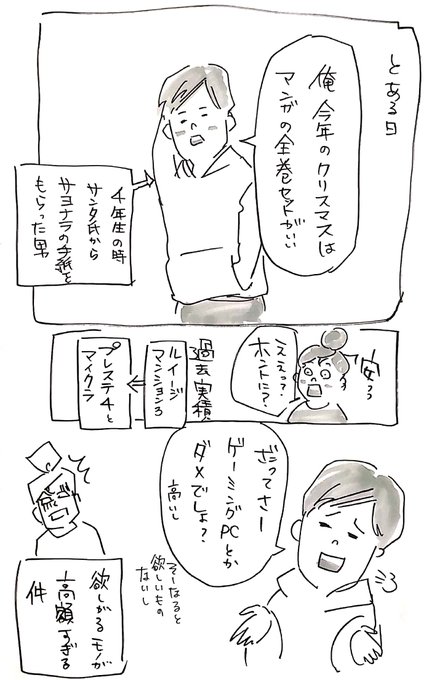 とある日
俺 今年のクリスマスは
マンガの全巻セットがいい
4年生の時
サンタ氏から
サヨナラの手紙を
もらった男
安っ
ええっ?
ホントに?
過去実績
ルイージ
マンション3
プレステ4と
マイクラ
だってさー
ゲーミングPCとか
ダメでしょ?
高いし
そーなると
欲しいもの
ないし
欲しがるモノが
高額すぎる
件